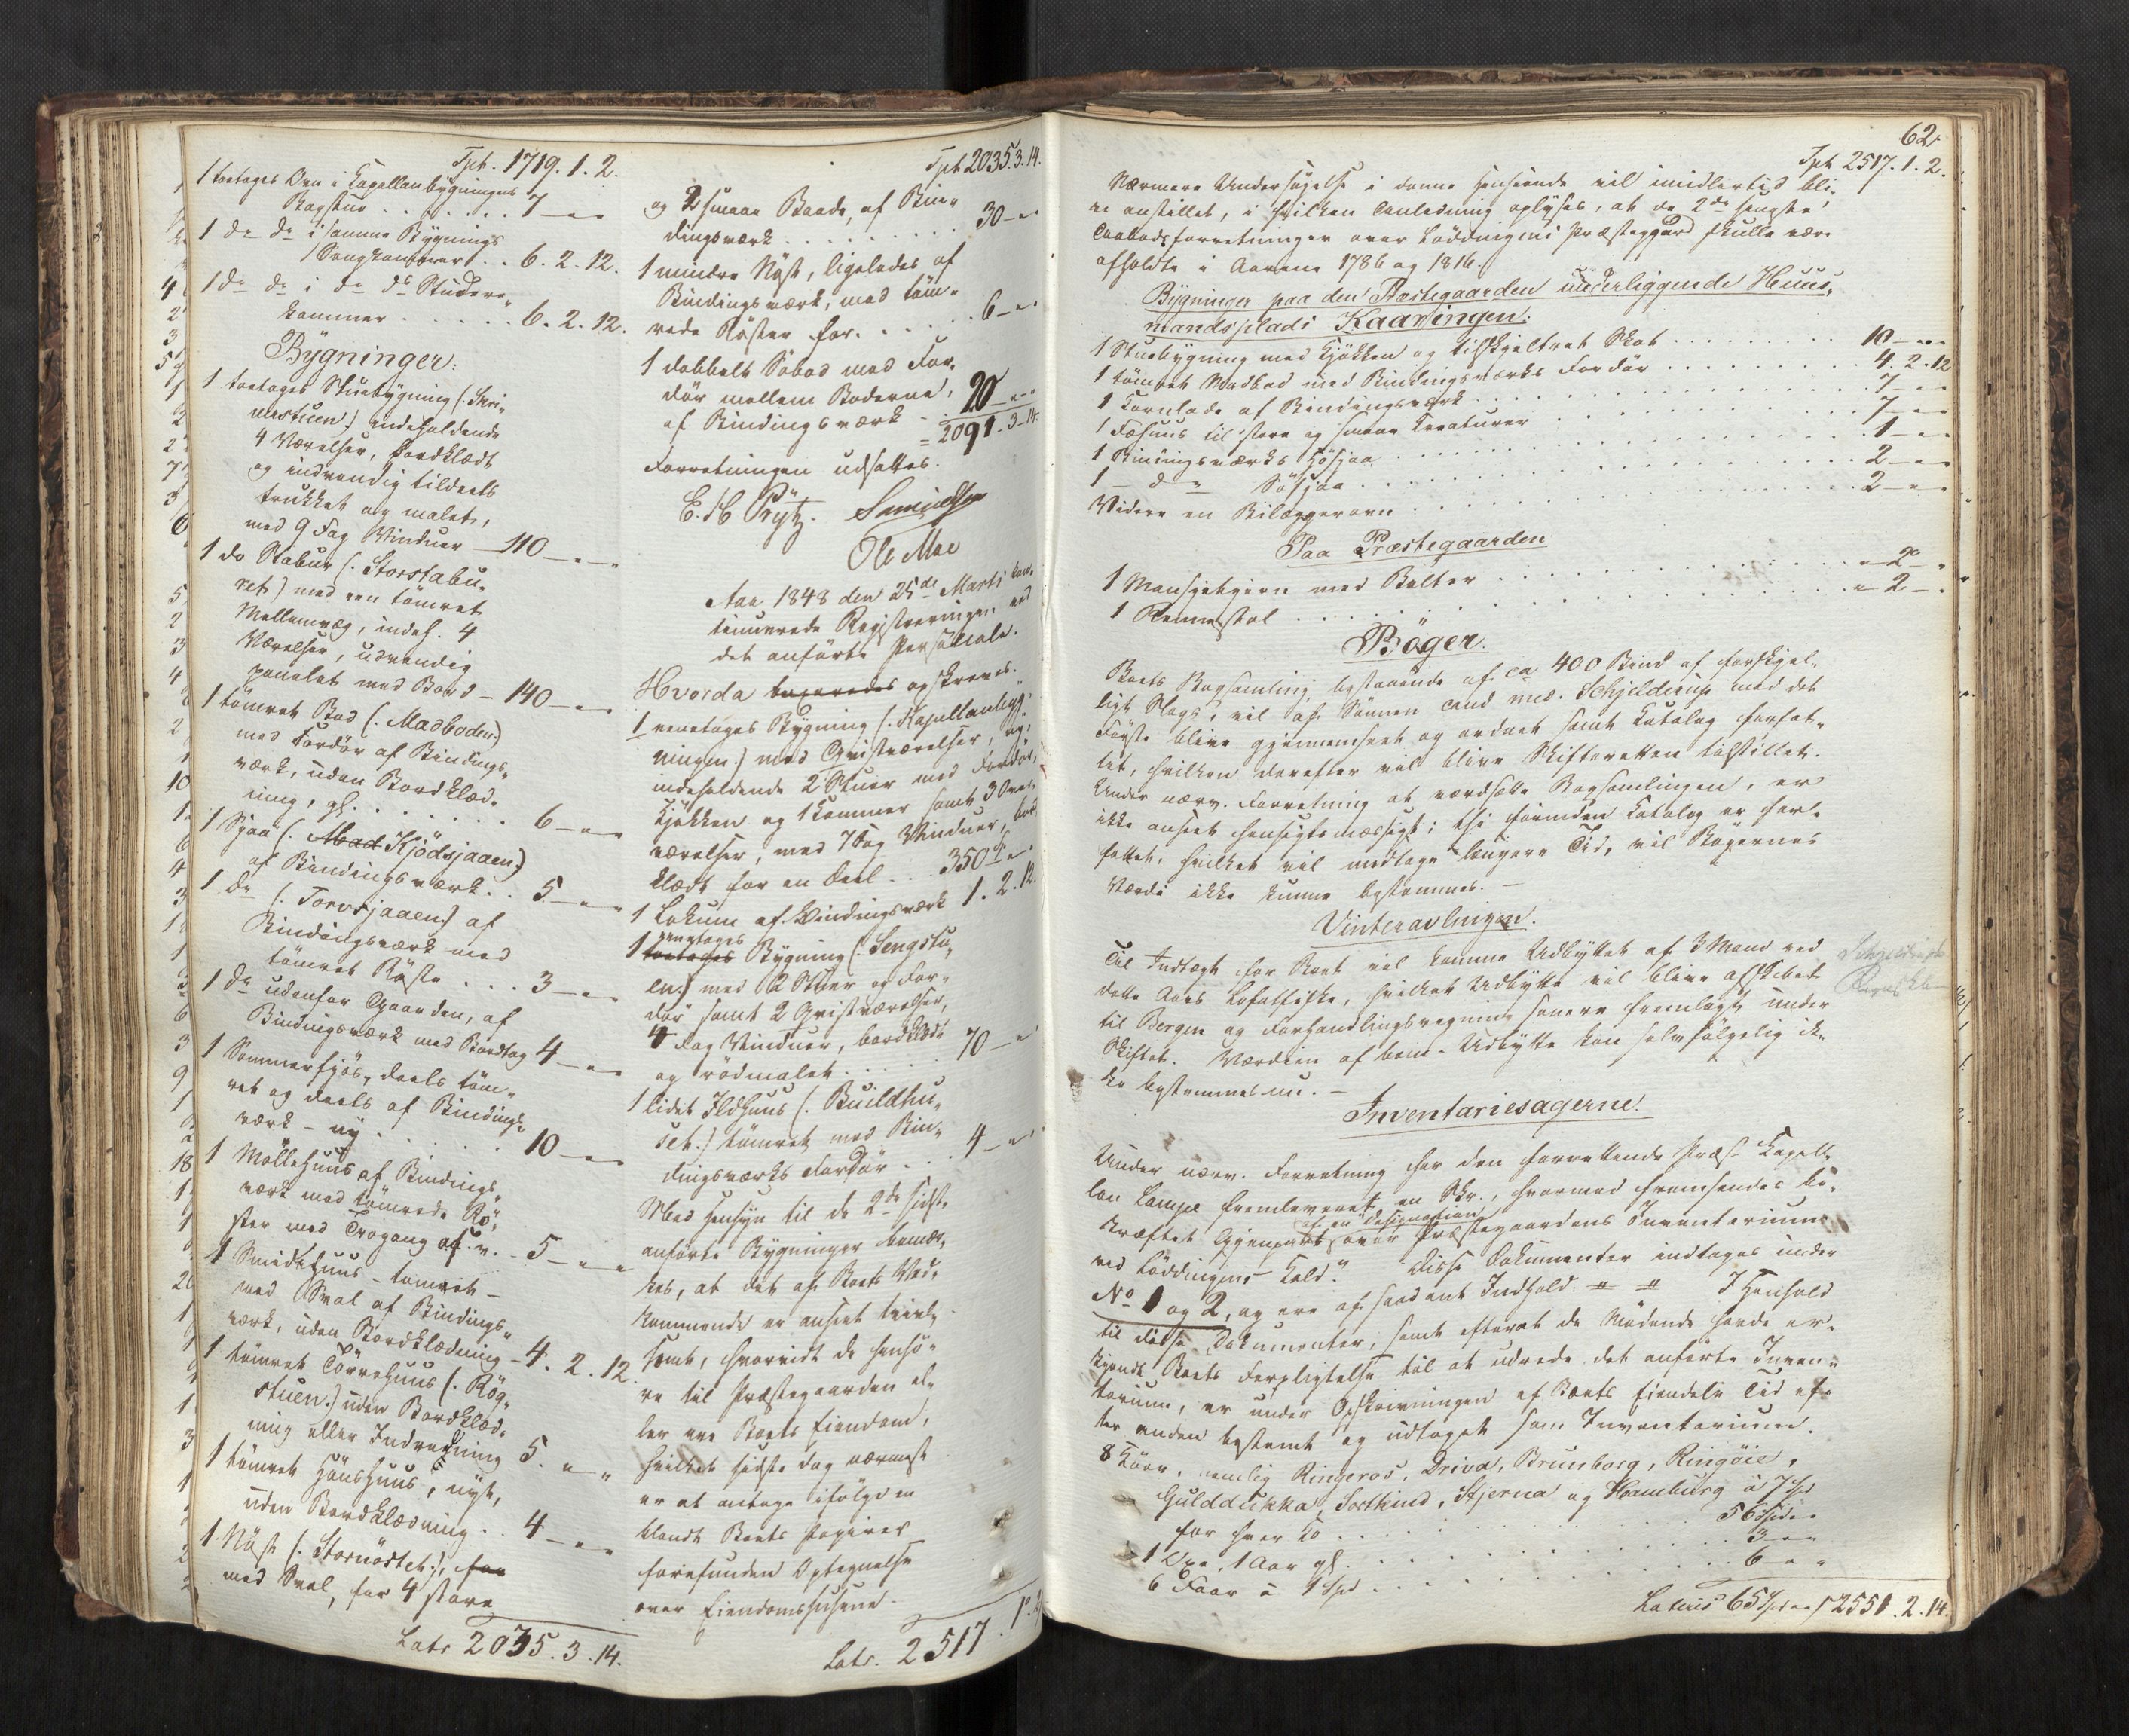 Tpt. 1719. 1. 2.
1 toetages Ovn i Kapellanbygningens
Bagstue . . . . . . 7 — " —
1 do do i samme Bygnings
Sengkammer . . 6. 2. 12.
1 do do i do do Studere-
kammer . . . . . 6. 2. 12.
Bygninger:
1 toetages Stuebygning (: Skri-
verstuen :) indeholdende
4 Værelser, bordklædt
og indvendig tildeels
trukket og malet,
med 9 Fag Vinduer — 110 — " —
1 do Stabur (: Storstabu-
ret :) med een tömret
Mellemvæg, indeh. 4
Værelser, udvendig
panelet med Bord — 140 — " —
1 tömret Bod (: Madboden :)
med Fordör af Bindings-
værk, uden Bordklæd-
ning, gl. . . . . . . 6 — " —
1 Sjaa (: Mad Kjödsjaaen :)
af Bindingsværk . . 5 — " —
1 do (: Torvsjaaen :) af
Bindingsværk med
tömret Röste . . . 3 — " —
1 do udenfor Gaarden, af
Bindingsværk med Bordtag 4 — " —
1 Sommerfjös, deels töm-
ret og deels af Bindings-
værk – ny . . . . . 10 — " —
1 Möllehuus af Bindings-
værk med tömrede Rö-
ster med Tragang o. s. v. - 5 — " —
1 Smidehuus – tomret –
med Sval af Bindings-
værk, uden Bordklædning – 4. 2. 12.
1 tömret Törrehuus (: Rög-
stuen :) uden Bordklæd-
ning eller Indredning 5. " "
1 tömret Hönshuus, nyt,
uden Bordklædning . . 4 — " —
1 Nöst (: Stornöstet :), for
med Sval, for 4 store
Latr 2035. 3. 14.
Tpt 2035. 3. 14.
og 2 smaae Baade, af Bin-
dingsværk . . . . . . . . 30 — " —
1 mindre Nöst, ligeledes af
Bindingsværk, med töm-
rede Röster for . . . . . 6 — " —
1 dobbelt Söbod med For-
dör mellem Boderne,
af Bindingsværk - . 20 — " —
= 2091 - 3 - 14.
Forretningen udsattes.
E. H Prytz. Samuelsen
Ole Moe
Aar 1848 den 25de Marts kon-
tinuerede Registreringen ved
det anförte Personale.
Hvorda begyndes opskreves.
1 eenetages Bygning (: Kapellanbyg-
ningen :) med Qvistværelser, og
indeholdende 2 Stuer med Fordör,
Kjökken og 1 Kammer samt 3 Qvist-
værelser, med 7 Fag Vinduer, bord-
klædt for en Deel . . 350 — " —
1 Lokum af Bindingsværk 1. 2. 12.
eenetages
1 toetages Bygning (: Sengstu-
en :) med 2 Stuer og For-
dör samt 2 Qvistværelser,
4 Fag Vinduer, bordklædt
og rödmalet . . . . . 70 — "
1 lidet Ildhuus (: Buildhu-
set :) tömret med Bin-
dingsværks Fordör . . . 4 — "
Med Hensyn til de 2de sidst-
anförte Bygninger bemær-
kes, at det af Boets Ved-
kommende er anseet tvivl-
somt, hvorvidt de henhö-
re til Præstegaarden el-
ler ere Boets Eiendom,
hvilket sidste dog nærmest
er at antage ifölge en
blandt Boets Papirer
forefunden Optegnelse
over Eiendomshusene.
Latr. 2517. 1. 2
62.
Tpt 2517. 1. 2.
Nærmere Undersögelse i denne Henseende vil imidlertid bli-
ve anstillet, i hvilken Anledning oplyses, at de 2de sengste
Aabodsforretninger over Löddingens Præstegaard skulle være
afholdte i Aarene 1786 og 1816.
Bygninger paa den Præstegaarden underliggende Huus-
mandsplads Kaaringen:
1 Stuebygning med Kjökken og tilskjeltret Skot . . . . . . . . . 10 — " —
1 tömret Madbod med Bindingsværks Fordör . . . . . . . . 4. 2. 12
1 Kornlade af Bindingsværk . . . . . . . . . . . . . . . 7 — " —
1 Fæhuus til store og smaae Kreaturer . . . . . . . . . . . 7 — " —
1 Bindingsværks Hösjaa . . . . . . . . . . . . . . . . 1 — " —
1 — do — Söesjaa . . . . . . . . . . . . . . . . . 2 — " —
Videre en Bilæggerovn . . . . . . . . . . . . . . . . 2 — " —
Paa Præstegaarden
1 Mangletgien med Balter . . . . . . . . . . . . . . . " 2 — "
1 Rennestol . . . . . . . . . . . . . . . . . . . . . " 2 — "
Böger.
Boets Bogsamling, bestaaende af ca 400 Bind af forskjel-
ligt Slags, vil af Sönnen cand med. Schjelderup med det
Förste blive gjennemseet og ordnet samt Katalog forfat-
tet, hvilken derefter vil blive Skifteretten tilstillet.
Under nærv. Forretning at værdsætte Bogsamlingen, er
ikke anseet hensigtsmæssigt; thi forinden Katalog er for-
fattet, hvilket vil medtage længere Tid, vil Bögernes
Værdi ikke kunne bestemmes. –
Vinteravlingen.
Til Indtægt for Boet vil komme Udbyttet af 3 Mand ved
dette Aars Lofotfiske, hvilket Udbytte vil blive afskibet
til Bergen og Forhandlingsregning senere fremlagt under
Skiftet. Værdien af bem. Udbytte kan selvfölgelig ik-
ke bestemmes nu. –
Inventariesagerne.
Under nærv. Forretning har den forrettende Præst Kapel-
lan Lampe fremleveret en Skr., hvormed fremsendes be-
kræftet Gjenpart af en Designation over Præstegaardens Inventarium
ved Löddingens Kald." Disse Dokumenter indtages under
No 1 og 2, og ere af saadant Indhold: " " I Henhold
til disse Dokumenter, samt efterat de Mödende havde er-
kjendt Boets Forpligtelse til at udrede det anförte Inven-
tarium, er under Opskrivningen af Boets Eiendele Tid ef-
ter anden bestemt og udtaget som Inventarium.
8 Köer, nemlig Ringeros, Driva, Brunborg, Ringöie,
Gulddukka, Sortkind, Stjerna og Hamburg à 7 Spd
for hver Ko . . . . . . . . . . . . . . . 56 Spd " "
1 Oxe, 1 Aar gl. . . . . . . . . . . . . . . 3 — " —
6 Faar à 1 Spd . . . . . . . . . . . . . . 6 — " —
Latus 65 Spd " " 2551. 2. 14.